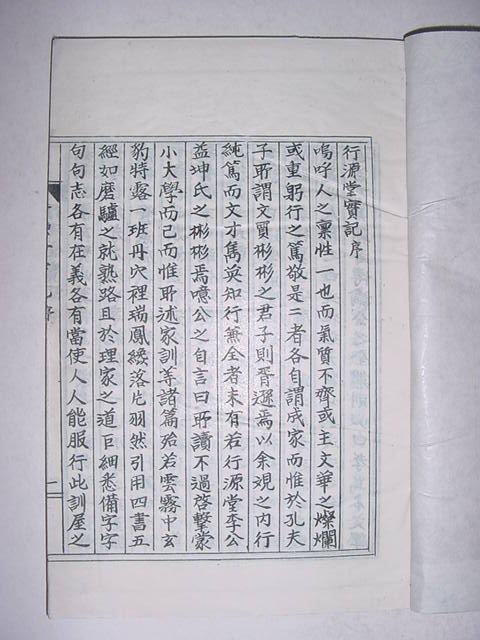 行源堂實記序
嗚呼人之稟性一也而氣質不齊或主文華之燦爛
或重躬行之篤敬是二者各自謂成家而惟於孔夫
子所謂文質彬彬之君子則胥遜焉以余覌之內行
純篤而文才雋英知行無全者未有若行源堂李公
益坤氏之彬彬焉噫公之自言曰所讀不過啓擊蒙
小大學而已而惟所述家訓等諸篇殆若雲霧中玄
豹特露一班丹穴裡瑞鳳纔落片羽然引用四書五
經如磨驢之就熟路且於理家之道巨細悉備字字
句句志各有在義各有當使人人能服行此訓屋之